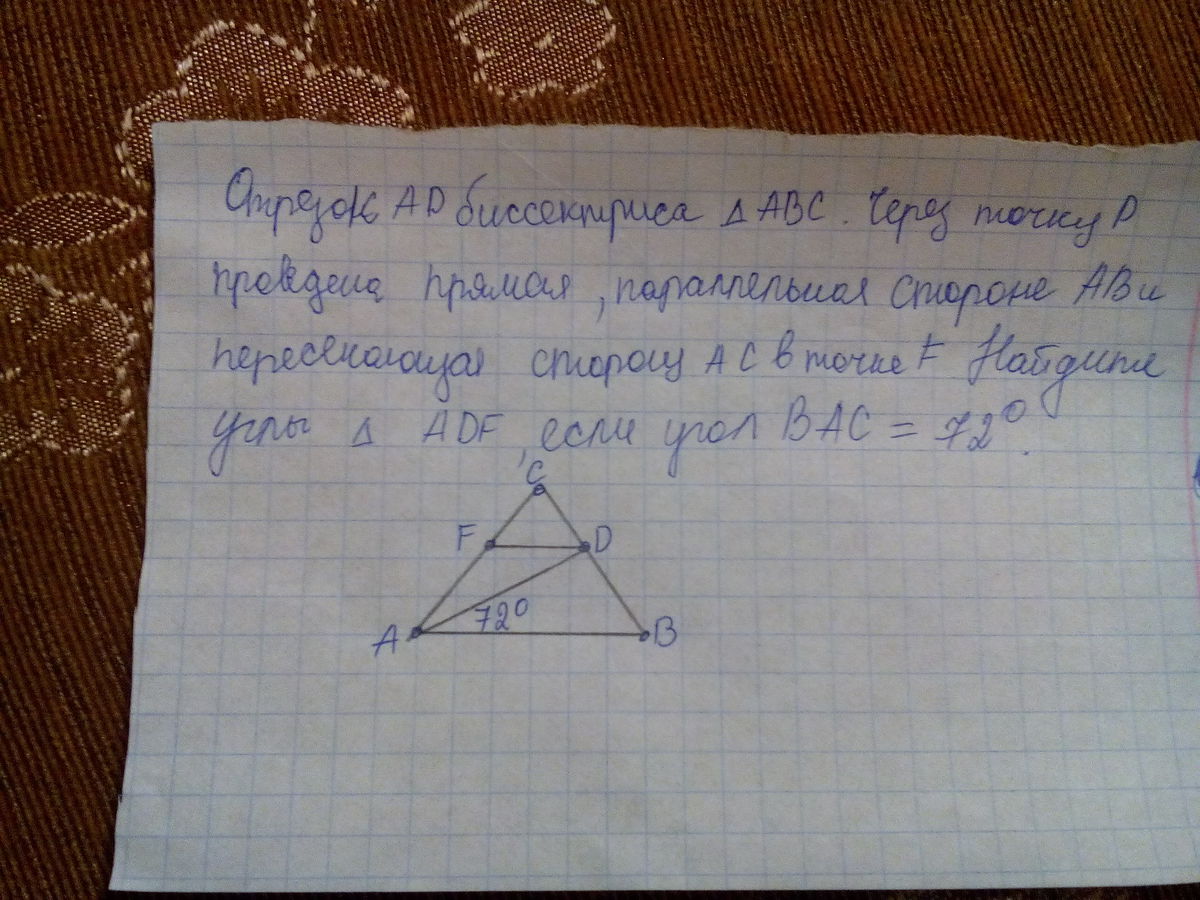 Отрезок AD биссектриса △ ABC. Через точку D
проведена прямая, параллельная стороне AB и
пересекающая сторону AC в точке F Найдите
углы △ ADF, если угол BAC = 72°.
C
F D
72°
A B